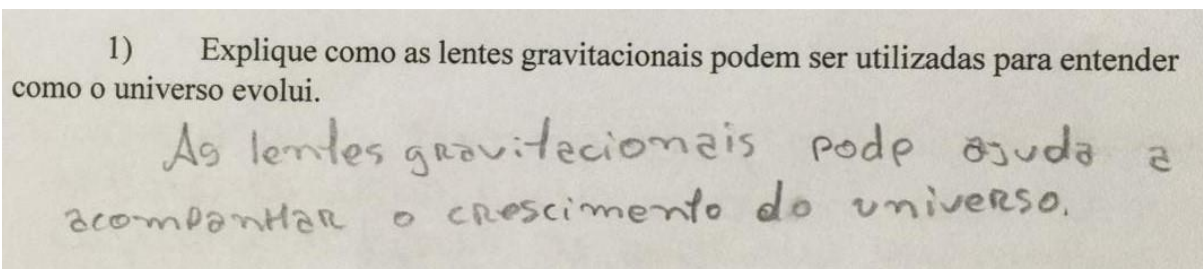 1) Explique como as lentes gravitacionais podem ser utilizadas para entender
como o universo evolui.
As lentes gravitacionais pode ajuda a
acompanHar o crescimento do universo.